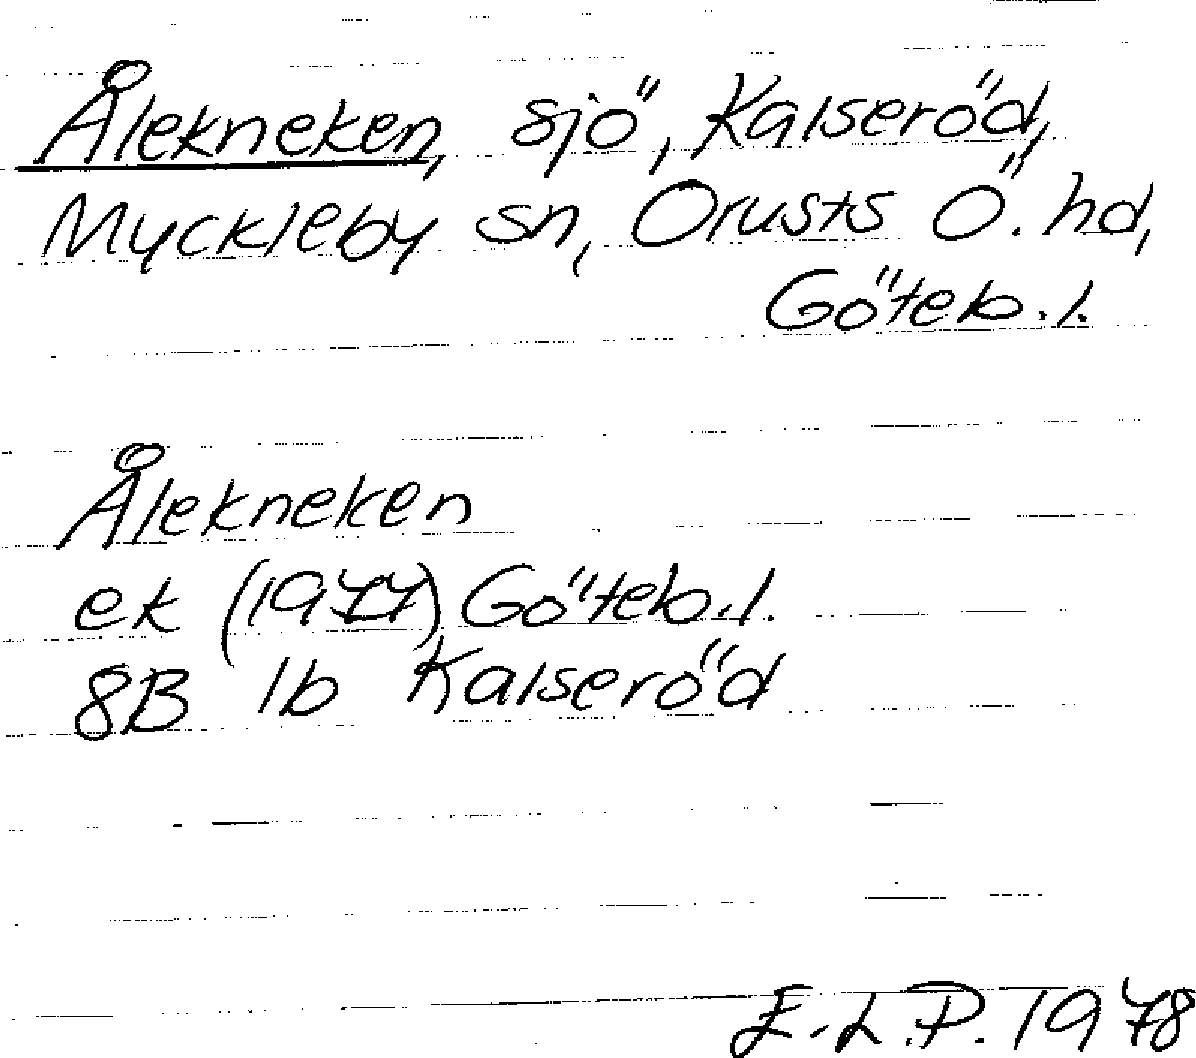 Ålekneken, sjö, Kalseröd,
Myckleby sn, Orusts Ö. hd,
Göteb.l.
Ålekneken
ek (1977) Göteb.l.
8B 1b Kalseröd
E.L.P. 1978